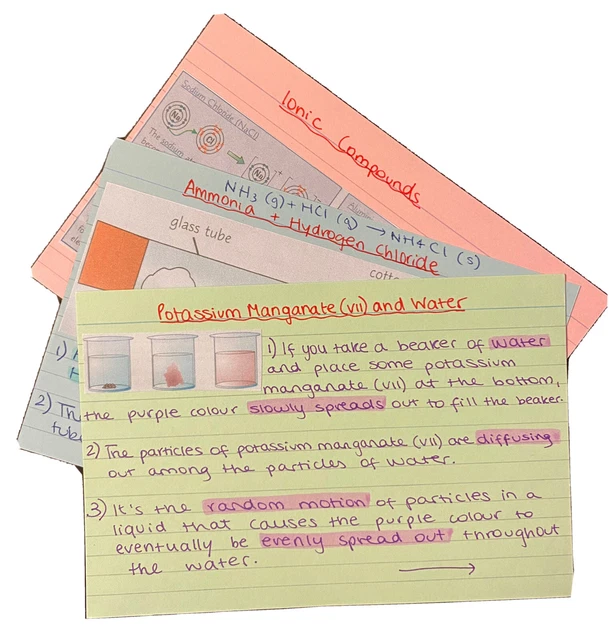 Ionic Compounds
Sodium Chloride (NaCl)
Na
Cl
Na
+
The sodium
NH3 (g) + HCl (g) → NH4Cl (s)
Ammonia + Hydrogen Chloride
glass tube
cott
1)
2) Th
tub
Potassium Manganate (VII) and Water
1) If you take a beaker of water
and place some potassium
manganate (VII) at the bottom,
the purple colour slowly spreads out to fill the beaker.
2) The particles of potassium manganate (VII) are diffusing
out among the particles of water.
3) It's the random motion of particles in a
liquid that causes the purple colour to
eventually be evenly spread out throughout
the water.